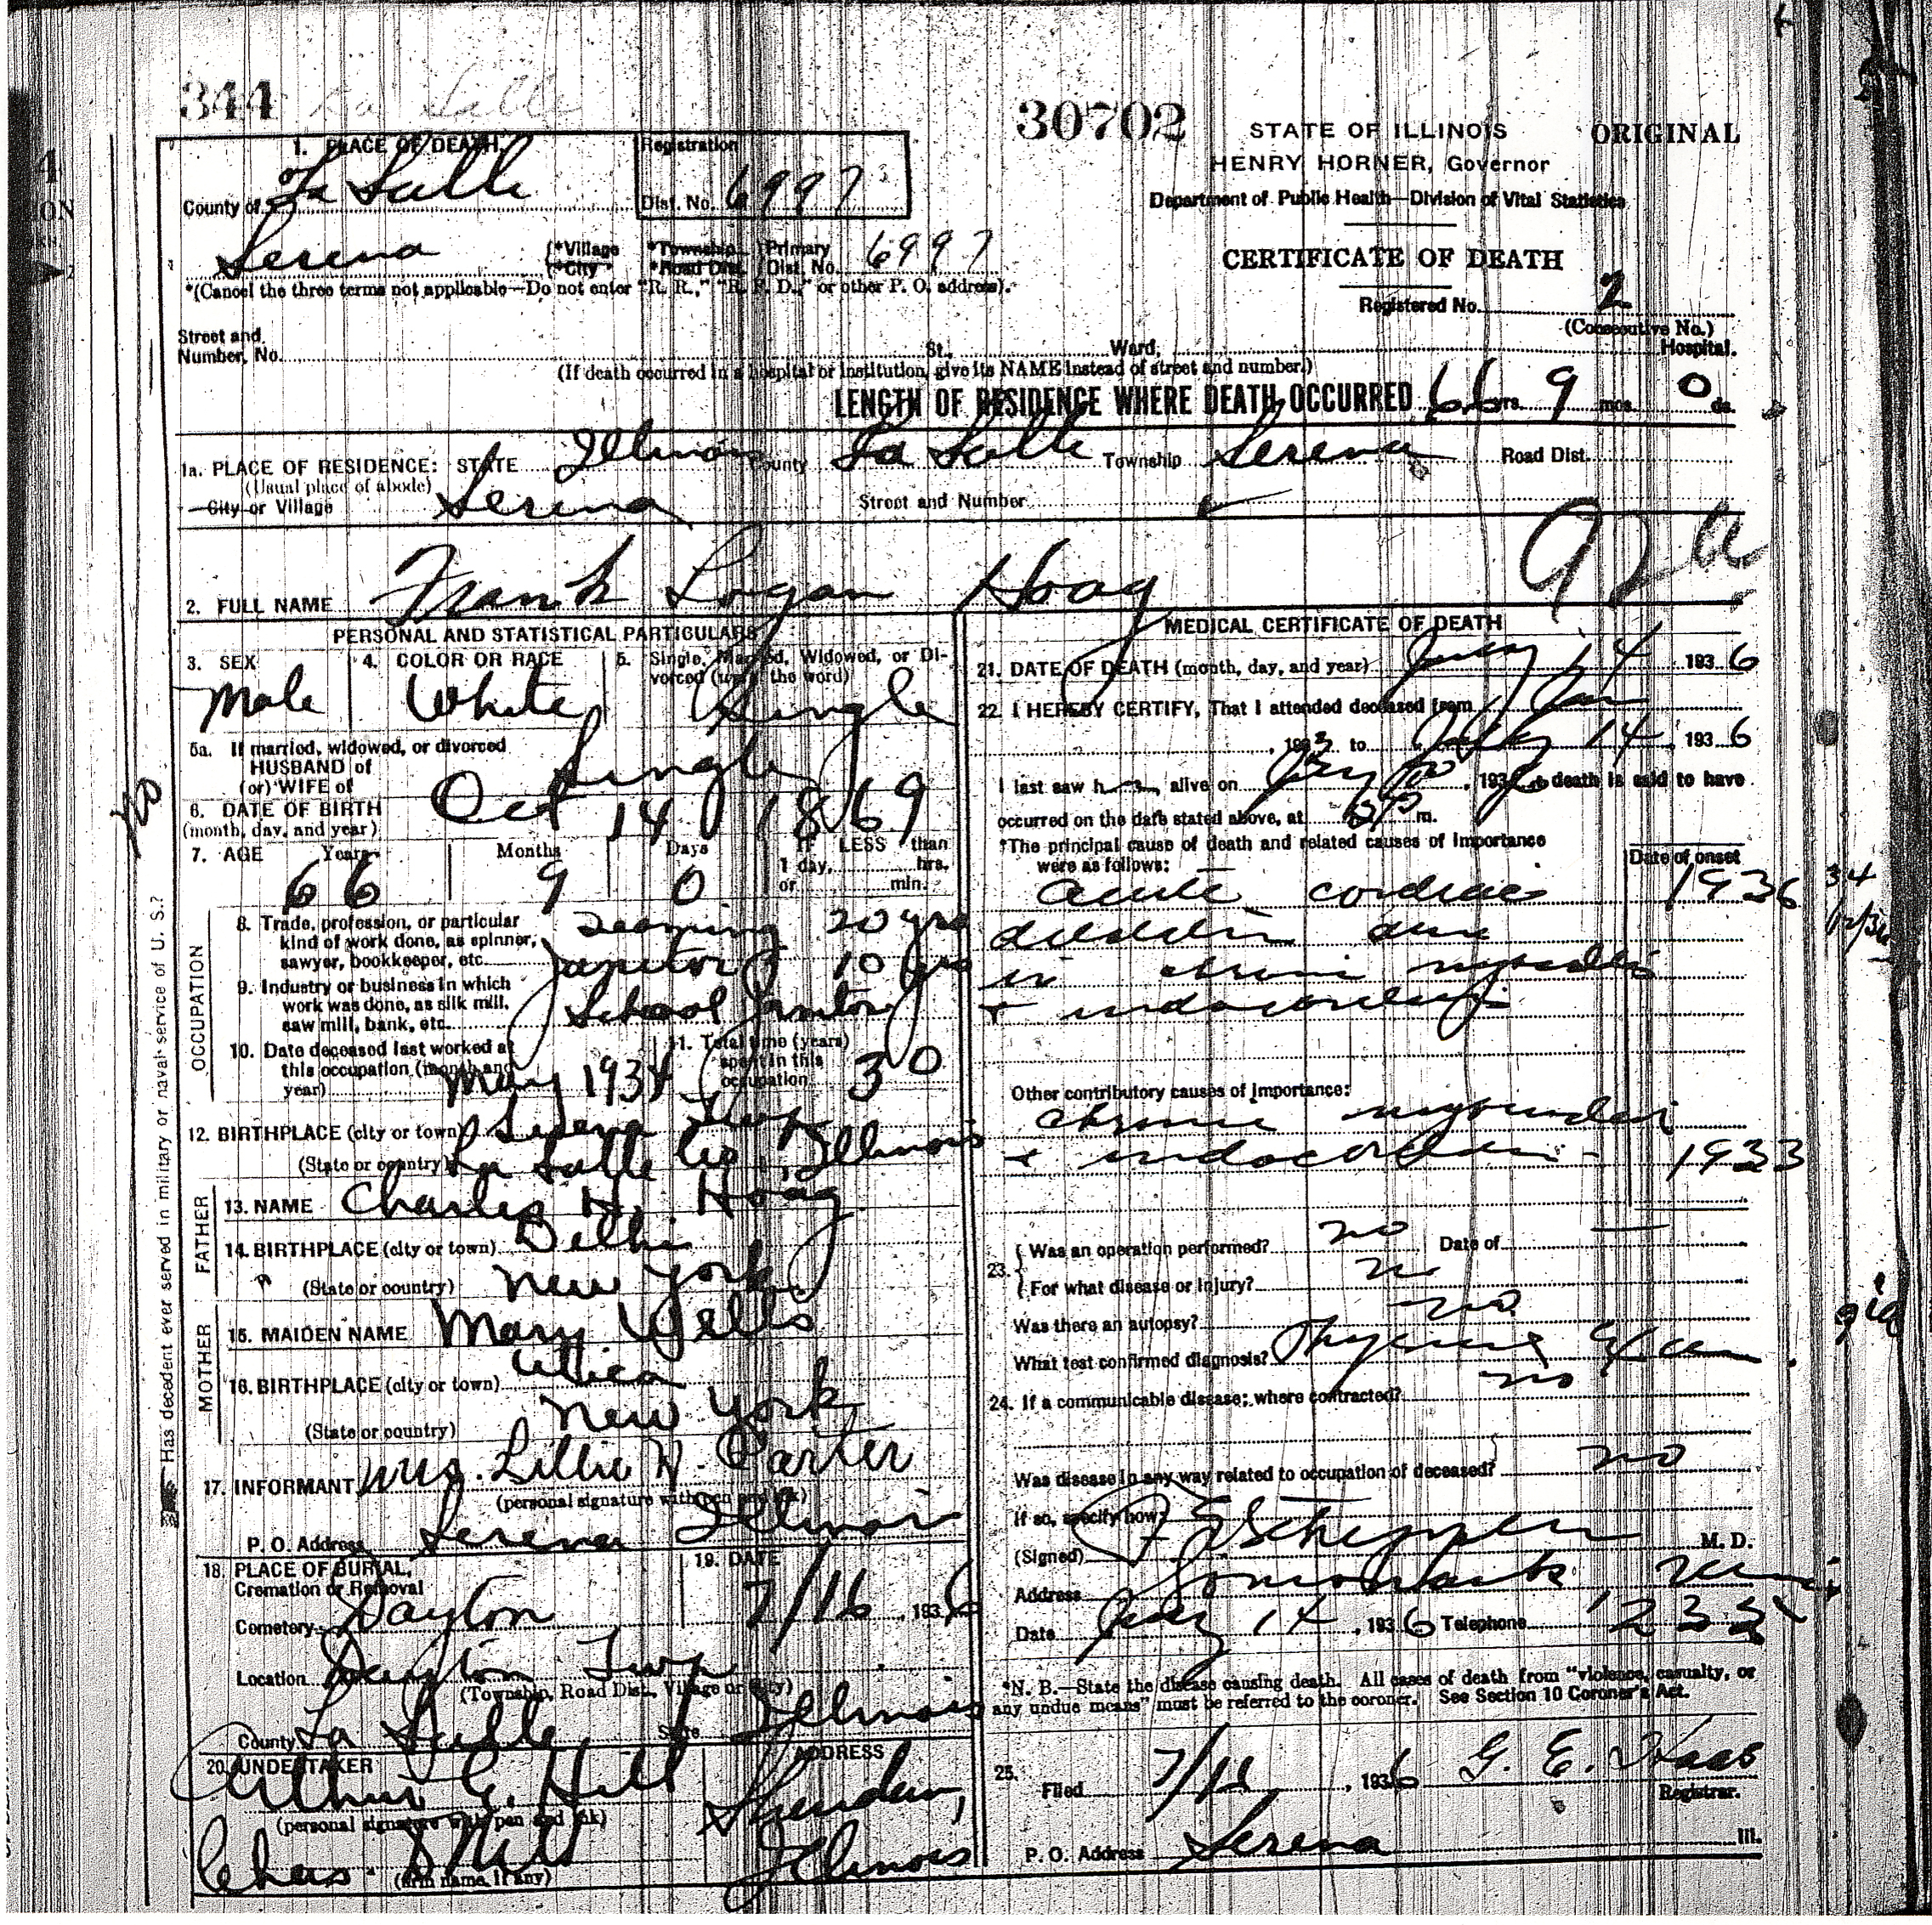 344 La Salle
30702
STATE OF ILLINOIS
ORIGINAL
HENRY HORNER, Governor
Department of Public Health—Division of Vital Statistics
CERTIFICATE OF DEATH
Registered No. 2
(Consecutive No.)
1. PLACE OF DEATH,
Registration
County of La Salle
Dist. No. 6997
Serena {*Village *Township }Primary
*City *Road Dist. Dist. No. 6997
*(Cancel the three terms not applicable—Do not enter "R. R.," "R. F. D.," or other P. O. address).
Street and
Number, No. St., Ward, Hospital.
(If death occurred in a hospital or institution, give its NAME instead of street and number.)
LENGTH OF RESIDENCE WHERE DEATH OCCURRED 66 yrs. 9 mos. 0 ds.
1a. PLACE OF RESIDENCE: STATE Illinois County La Salle Township Serena Road Dist.
(Usual place of abode)
City or Village Serena Street and Number
92a
2. FULL NAME Frank Logan Hoag
PERSONAL AND STATISTICAL PARTICULARS
3. SEX
Male
4. COLOR OR RACE
White
5. Single, Married, Widowed, or Divorced (write the word)
Single
5a. If married, widowed, or divorced
HUSBAND of
(or) WIFE of
Single
6. DATE OF BIRTH
(month, day, and year)
Oct 14 1869
7. AGE Years Months Days IF LESS than
1 day, hrs.
or min.
66 9 0
OCCUPATION
8. Trade, profession, or particular
kind of work done, as spinner,
sawyer, bookkeeper, etc.
20 yrs
Janitor 10 yrs
9. Industry or business in which
work was done, as silk mill,
saw mill, bank, etc.
School Janitor
10. Date deceased last worked at
this occupation (month and
year) May 1934
11. Total time (years)
spent in this
occupation 30
12. BIRTHPLACE (city or town) Serena Twp
(State or country) La Salle Co, Illinois
FATHER
13. NAME Charles H. Hoag
14. BIRTHPLACE (city or town) Delhi
(State or country) New York
MOTHER
15. MAIDEN NAME Mary Wells
16. BIRTHPLACE (city or town) Utica
(State or country) New York
17. INFORMANT Mrs. Lillie H. Carter
(personal signature with pen and ink)
P. O. Address Serena Illinois
18. PLACE OF BURIAL,
Cremation or Removal
Cemetery Dayton
19. DATE
7/16, 1936
Location Dayton Twp
(Township, Road Dist., Village or City)
County La Salle State Illinois
20. UNDERTAKER
Arthur G. Hill
ADDRESS
Sheridan,
Illinois
(personal signature with pen and ink)
Chas
(firm name, if any)
Has decedent ever served in military or naval service of U. S.? No
MEDICAL CERTIFICATE OF DEATH
21. DATE OF DEATH (month, day, and year) July 14 1936
22. I HEREBY CERTIFY, That I attended deceased from Jan
, 1933 to July 14, 1936
I last saw him alive on July, 1936 death is said to have
occurred on the date stated above, at m.
*The principal cause of death and related causes of importance
were as follows:
Date of onset
acute cardiac 1936
dilation due
to chronic myocarditis
+ endocarditis
Other contributory causes of importance:
chronic myocarditis
+ endocarditis 1933
23. {Was an operation performed? no Date of
For what disease or injury? no
Was there an autopsy? no
What test confirmed diagnosis? Physical Exam.
24. If a communicable disease; where contracted? no
Was disease in any way related to occupation of deceased? no
If so, specify how?
(Signed) M. D.
Address Somonauk, Illinois
Date July 14, 1936 Telephone
*N. B.—State the disease causing death. All cases of death from "violence, casualty, or
any undue means" must be referred to the coroner. See Section 10 Coroner's Act.
25.
Filed 7/16, 1936 G. E. Haas
Registrar.
P. O. Address Serena Ill.